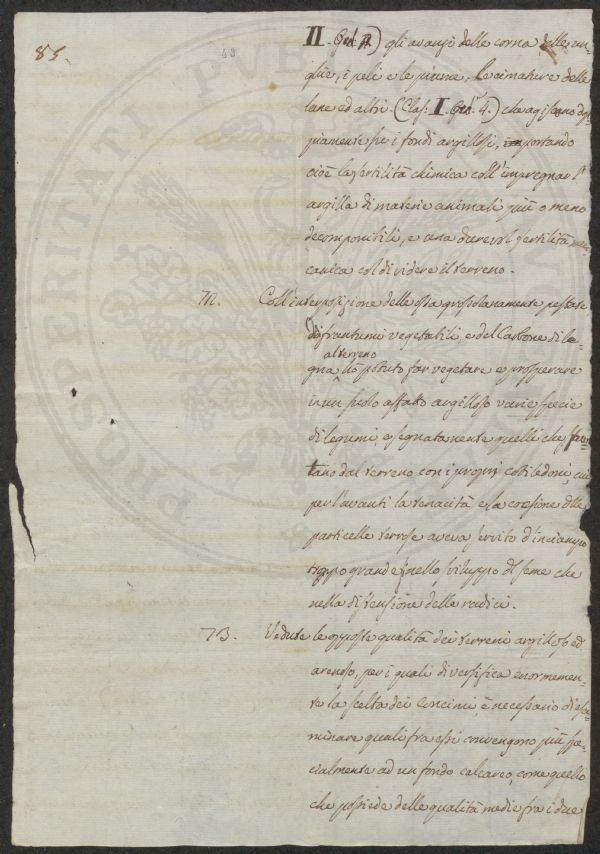 85.
49
II. Gen. A) gli avanzi delle corna delle un-
ghie, i peli e le penne, le cimature delle
lane ed altri. (Clas: I. Gen. 4.) che agiscono do-
piamente su i fondi argillosi, portando
cioè la fertilità chimica coll'impregnar l'
argilla di materie animali più o meno
decomponibili, e una durevol fertilità mec-
canica col dividere il terreno.
72. Coll'interposizione delle ossa grossolanamente pestate
di frantumi vegetabili, e del Carbone di le-
al terreno
gna ho potuto far vegetare e prosperare
in un suolo affatto argilloso varie specie
di legumi e segnatamente quelli che spun-
tano dal terreno con i proprj cotiledoni, cui
per l'avanti la tenacità e la coesione dlle
particelle terrose aveva servito d'inciampo
troppo grande nello sviluppo dl seme che
nella distensione delle radici.
73. Vedute le opposte qualità dei terreni argilloso ed
arenoso, per i quali diversifica enormemen-
te la scelta dei Concimi, è necessario di esa-
minare quali fra essi convengono più spe-
cialmente ad un fondo calcareo, come quello
che possiede delle qualità medie fra i due
PROSPERITATI PUBLICAE